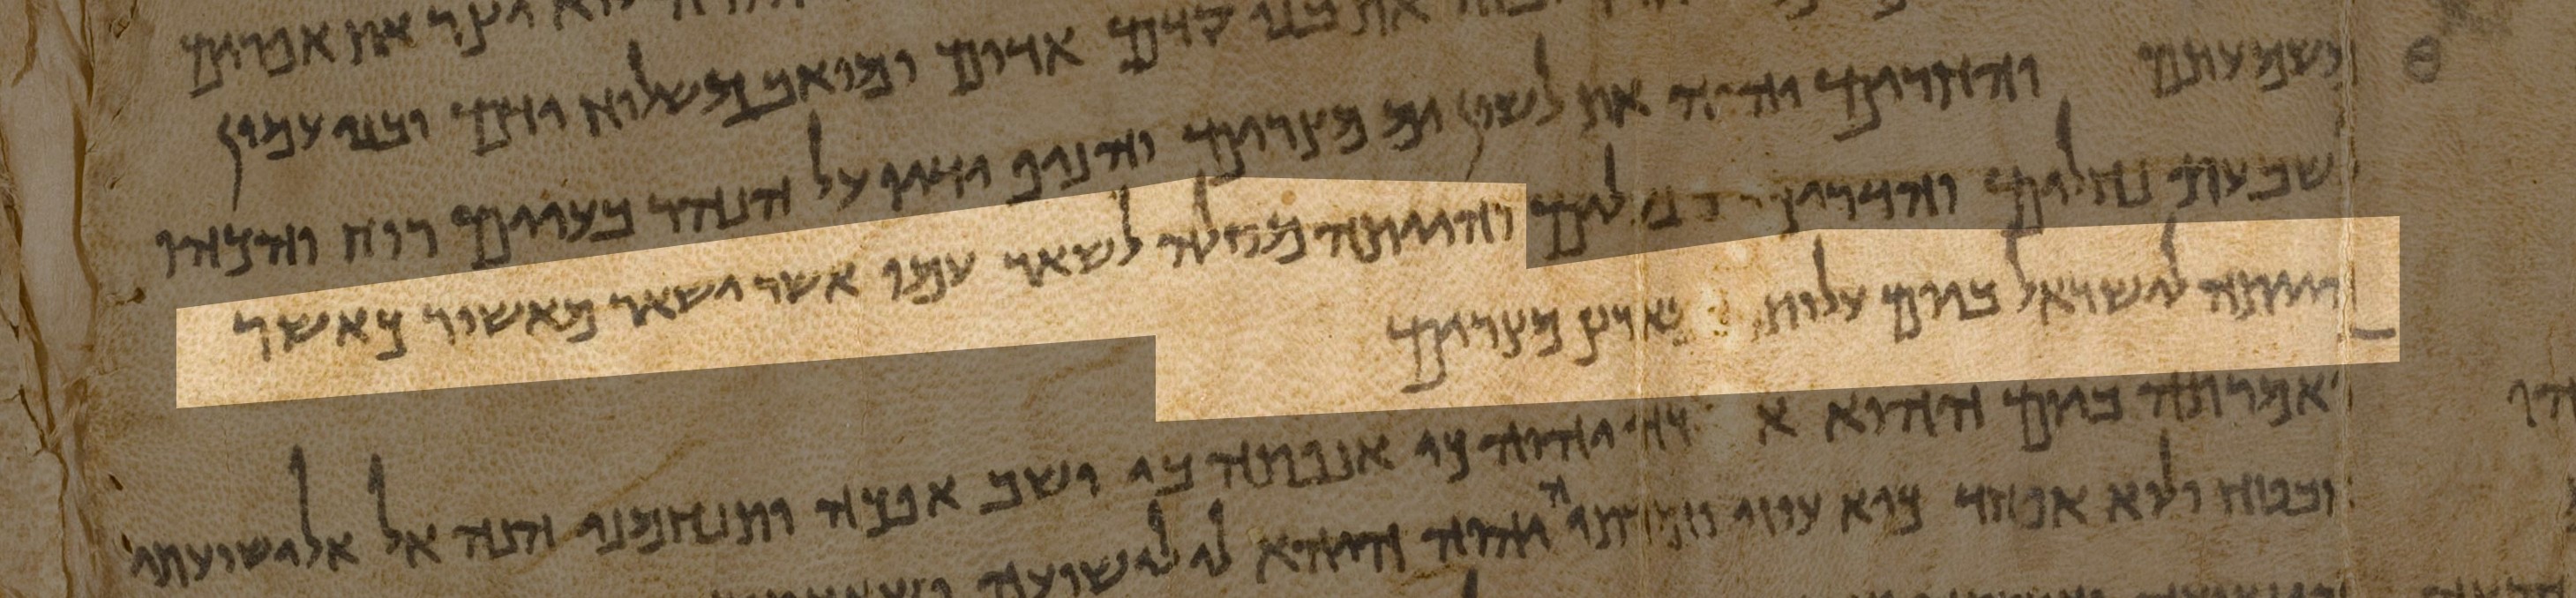 לוא יצר את אפרים
את בני קדם אדום ומואב משלוח ידם ובני עמון
משמעתם והחרים יהוה את לשון ים מצרים והניף ידו על הנהר בעיים רוחו והכהו
לשבעת נחלים והדריכו בנעלים והייתה מסלה לשאר עמו אשר ישאר מאשור כאשר
הייתה לישראל ביום עלותו מארץ מצרים
ואמרתה ביום ההוא אודך יהוה כי אנפתה בי ישב אפכה ותנחמני הנה אל אל ישועתי
אבטח ולוא אפחד כיא עוזי וזמרתיה יהוה היהא לי לישועה